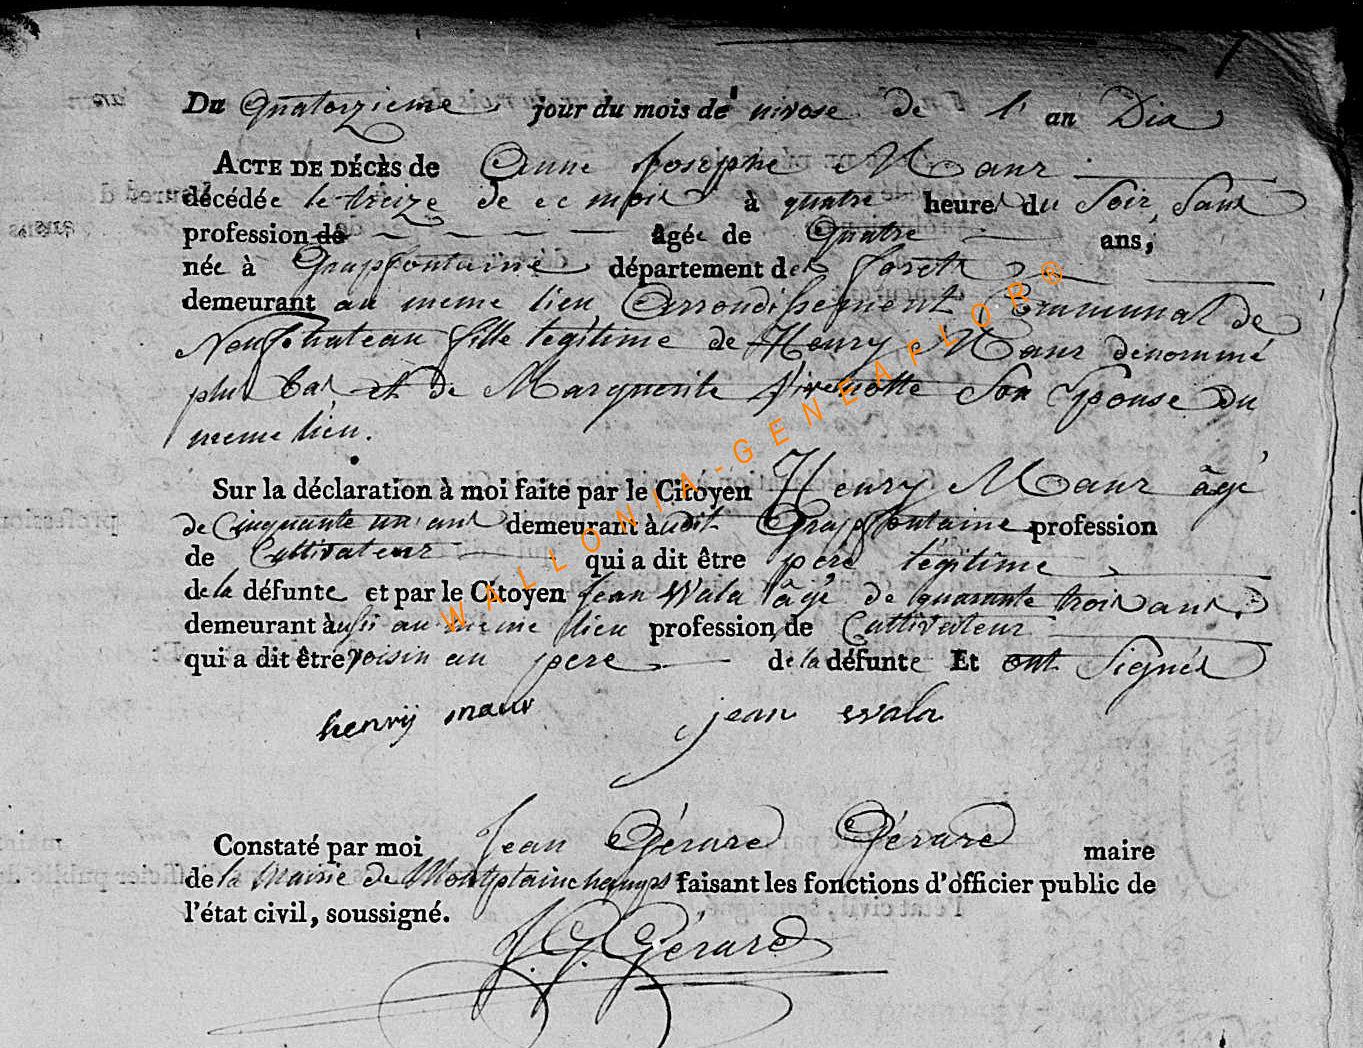 Du Quatorzieme jour du mois de nivose de l' an Dix
ACTE DE DÉCÈS de Anne Josephe Maur
décédée le treize de ce mois à quatre heures du Soir, Sans
profession de agée de Quatre ans,
née à Grapfontaine département des forets
demeurant au meme lieu Arrondissement Communal de
Neufchateau fille legitime de Henry Maur denommé
plus bas et de Marguerite Pirenotte Son Epouse du
meme lieu.
Sur la déclaration à moi faite par le Citoyen Henry Maur âgé
de Cinquante un ans demeurant audit Grapfontaine profession
de Cultivateur qui a dit être pere legitime
de la défunte et par le Citoyen Jean Wala âgé de quarante trois ans
demeurant àussi au meme lieu profession de Cultivateur
qui a dit être voisin au pere de la défunte Et ont Signés
henrÿ maur jean wala
Constaté par moi Jean Gérard Gérard maire
de la Mairie de Montplainchamps faisant les fonctions d'officier public de
l'état civil, soussigné.
J. G. Gérard
WALLONIA-GENEAFLOR ®